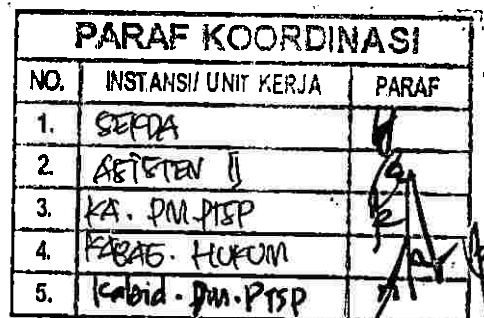 PARAF KOORDINASI
NO. INSTANSI/ UNIT KERJA PARAF
1. SEKDA
2. ASISTEN II
3. KA. PM.PTSP
4. KABAG. HUKUM
5. Kabid. PM.PTSP